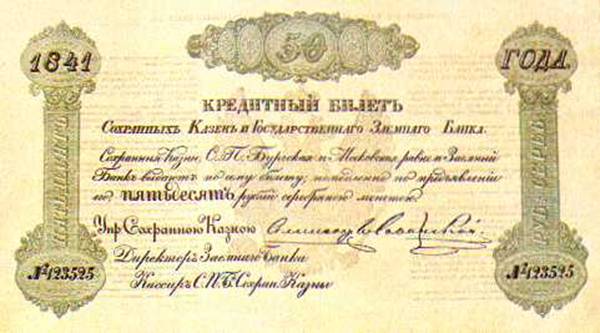 50
1841 ГОДА.
КРЕДИТНЫЙ БИЛЕТЪ
СОХРАННЫХЪ КАЗЕНЪ И ГОСУДАРСТВЕННАГО ЗАЕМНАГО БАНКА.
Сохранныя Казны, С.П.Бургская и Московская равно и Заемный
Банкъ выдаютъ по сему билету, немедленно по предъявленіи
его ПЯТЬДЕСЯТЪ рублей серебряною монетою.
Упр. Сохранною Казною
Директоръ Заемнаго Банка
Кассиръ С.П.Б. Сохран. Казны
ПЯТЬДЕСЯТЪ
№123525 №123525